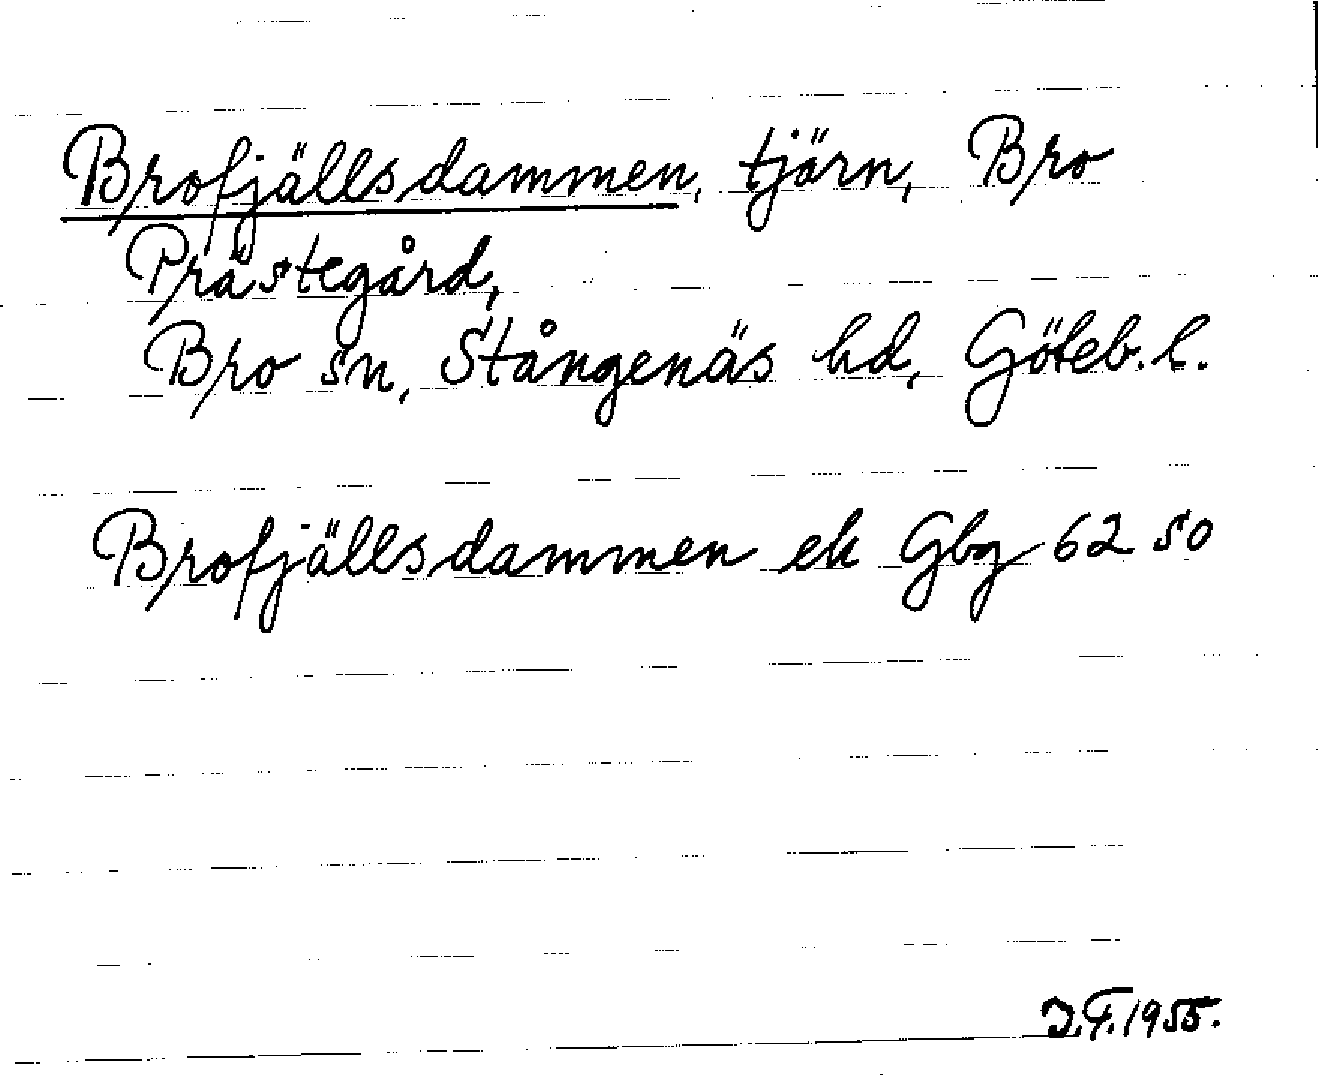 Brofjällsdammen, tjärn, Bro
Prästegård,
Bro sn, Stångenäs hd, Göteb. l.
Brofjällsdammen ek Gbg 62 50
J.F. 1955.